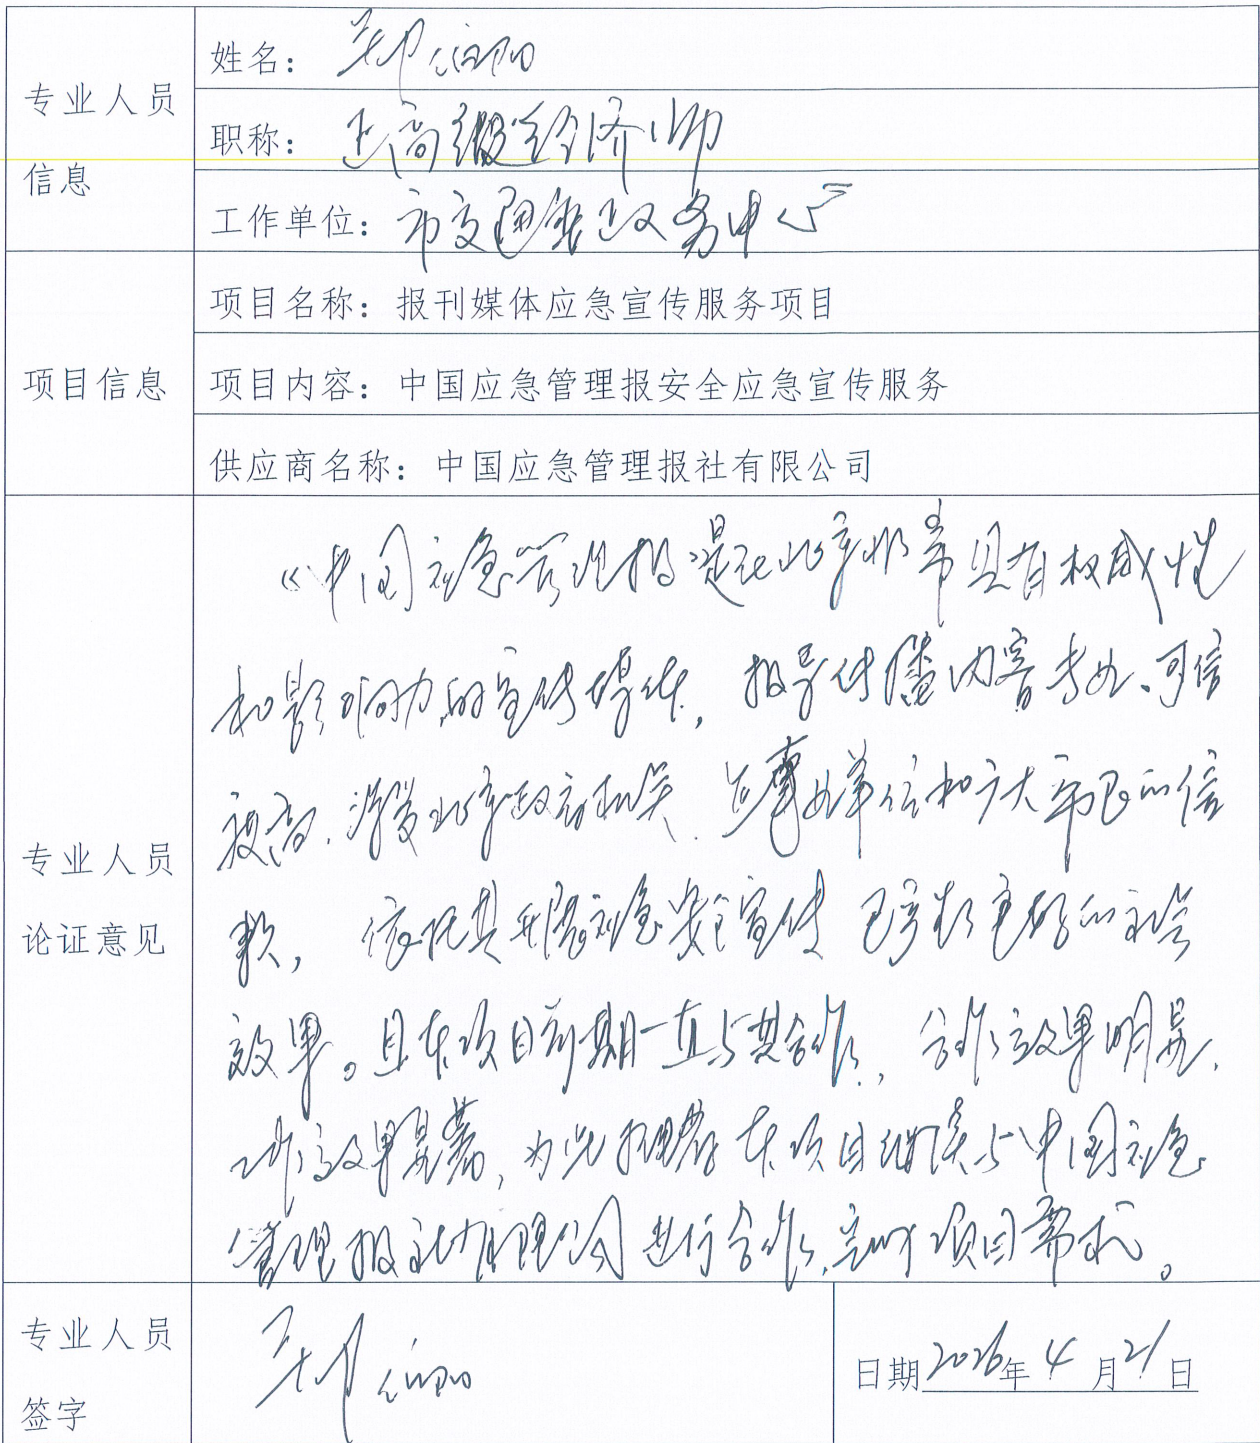 专业人员
信息
姓名：郑
职称：正高级经济师
工作单位：市交通运政务中心
项目信息
项目名称：报刊媒体应急宣传服务项目
项目内容：中国应急管理报安全应急宣传服务
供应商名称：中国应急管理报社有限公司
专业人员
论证意见
《中国应急管理报是在北京非常具有权威性
和影响力的宣传媒体，报导传播内容专业、可信
度高，深受北京政府机关、企事业单位和广大市民的信
赖，依托其开展应急安全宣传 已产生良好的社会
效果。且本项目前期一直与其合作，合作效果明显，
工作效果显著，为此推荐本项目继续与中国应急
管理报社有限公司进行合作，项目需求。
专业人员
签字
郑
日期2026年4月21日